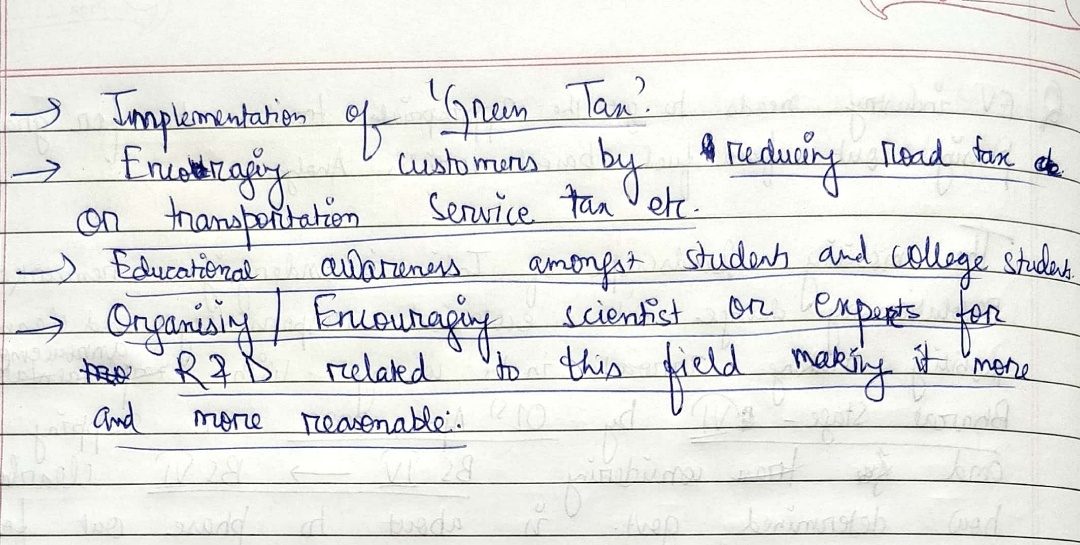 → Implementation of 'Green Tax'.
→ Encouraging customers by reducing Road tax
or transportation Service tax etc.
→ Educational awareness amongst students and college students.
→ Organising / Encouraging scientist or experts for
R & D related to this field making it more
and more reasonable.